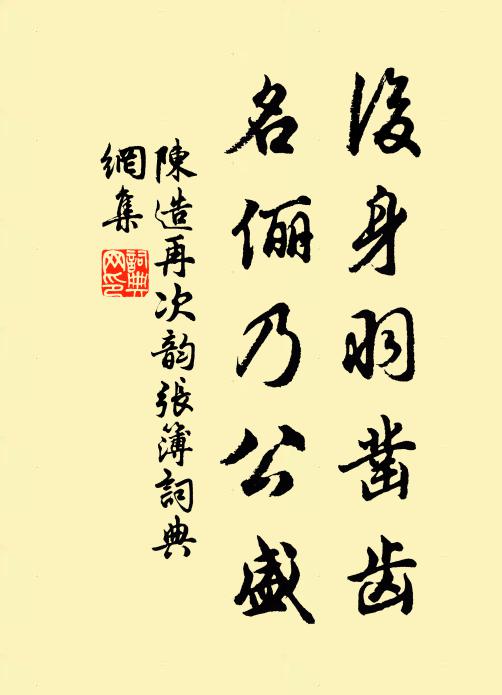 後身羽凿齿
名俪乃公盛
陳造再次韵張簿詞典
網集
詞典网印